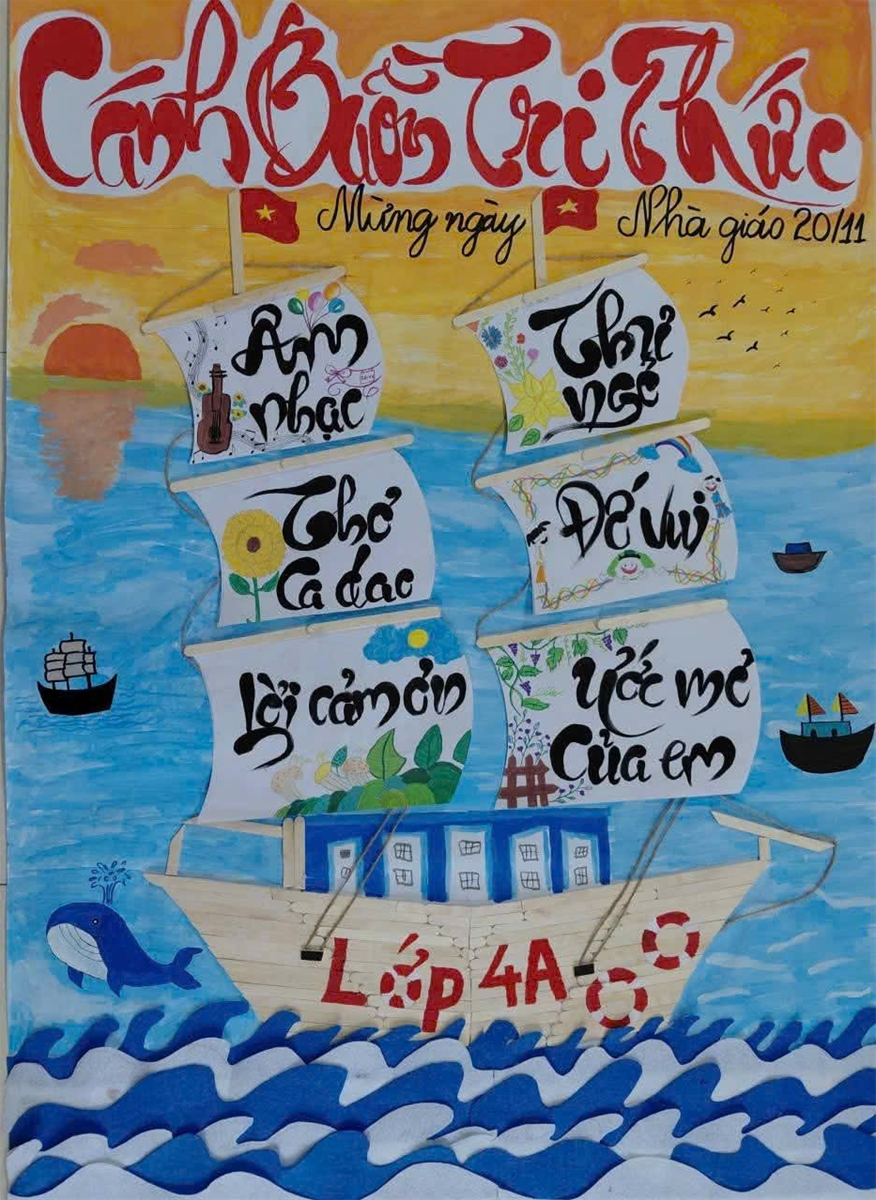 Cánh Buồm Tri Thức
Mừng ngày Nhà giáo 20/11
Âm
nhạc
Thư
ngỏ
Thơ
Ca dao
Đố vui
Lời cảm ơn
Ước mơ
Của em
Lớp 4A